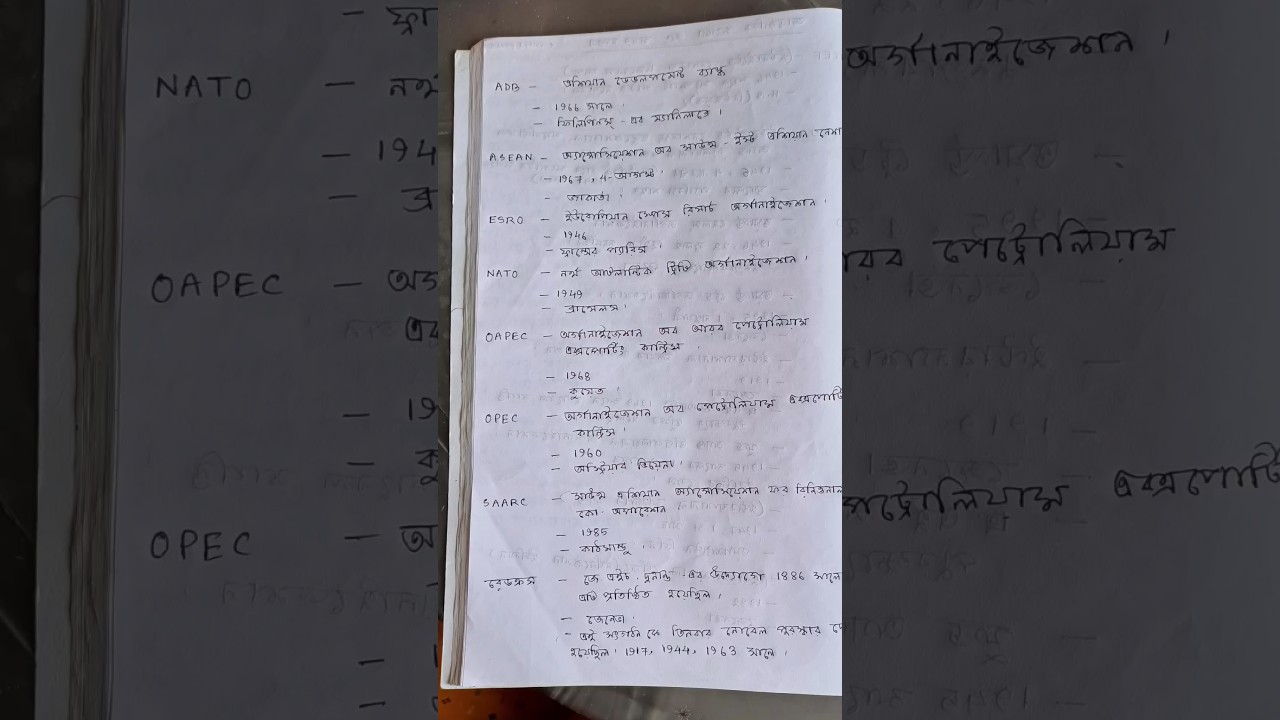 ADB - এশিয়ান ডেভেলপমেন্ট ব্যাঙ্ক
- 1966 সালে।
- ফিলিপিনস্ - এর ম্যানিলাতে।
ASEAN - অ্যাসোসিয়েশন অব সাউথ - ইস্ট এশিয়ান
- 1967, 4-আগস্ট।
- জাকার্তা।
ESRO - ইউরোপিয়ান স্পেস রিসার্চ অর্গানাইজেশান।
- 1946
- ফ্রান্সের প্যারিস।
NATO - নর্থ আটলান্টিক ট্রিটি অর্গানাইজেশান।
- 1949
- ব্রাসেলস।
OAPEC - অর্গানাইজেশান অব আরব পেট্রোলিয়াম
এক্সপোর্টিং কান্ট্রিস।
- 1968
- কুয়েত।
OPEC - অর্গানাইজেশান অব পেট্রোলিয়াম এক্সপোর্টি
কান্ট্রিস।
- 1960
- অস্ট্রিয়ার ভিয়েনা।
SAARC - সাউথ এশিয়ান অ্যাসোসিয়েশান ফর রিজিওনাল
কো-অপারেশন
- 1985
- কাঠমান্ডু।
রেডক্রস - জে এইচ. দুনান্ত -এর উদ্যোগে 1886 সালে
এটি প্রতিষ্ঠিত হয়েছিল।
- জেনেভা।
- এই সংগঠন কে তিনবার নোবেল পুরস্কার
হয়েছিল। 1917, 1944, 1963 সালে।